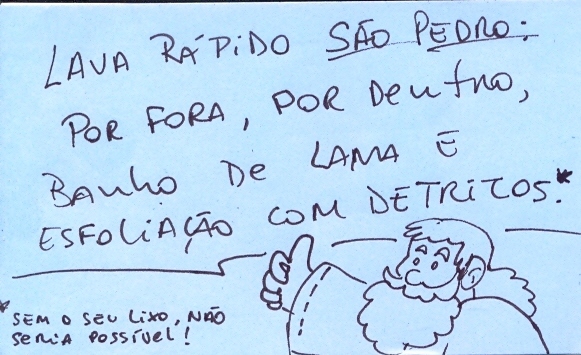 LAVA RÁPIDO SÃO PEDRO:
POR FORA, POR DENTRO,
BANHO DE LAMA E
ESFOLIAÇÃO COM DETRITOS.*
*SEM O SEU LIXO, NÃO
SERIA POSSÍVEL!